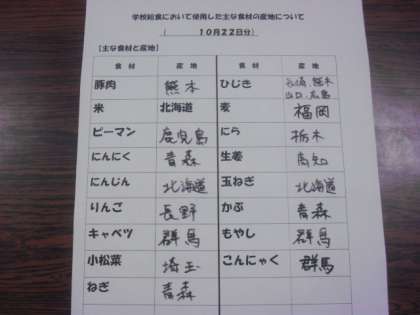 学校給食において使用した主な食材の産地について
( 10月22日分)
【主な食材と産地】
食 材 産 地 食 材 産 地
豚肉 熊本 ひじき 長崎、熊本
山口、広島
米 北海道 麦 福岡
ピーマン 鹿児島 にら 栃木
にんにく 青森 生姜 高知
にんじん 北海道 玉ねぎ 北海道
りんご 長野 かぶ 青森
キャベツ 群馬 もやし 群馬
小松菜 埼玉 こんにゃく 群馬
ねぎ 青森